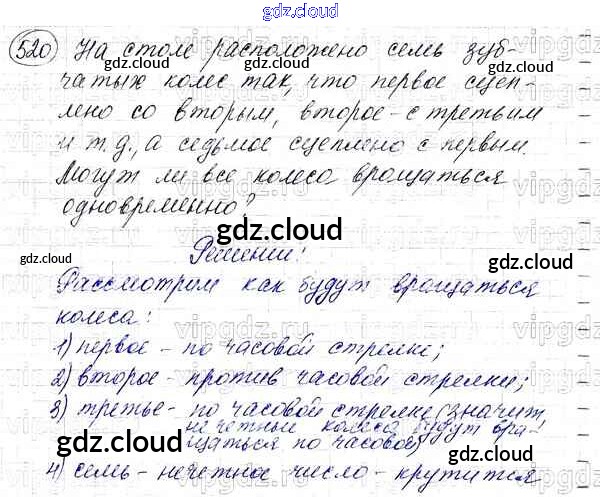 gdz.cloud
520 На столе расположено семь зуб-
чатых колес так, что первое сцеп-
лено со вторым, второе - с третьим
и т.д., а седьмое сцеплено с первым.
Могут ли все колеса вращаться
одновременно?
Решении!
Рассмотрим как будут вращаться
колеса:
1) первое - по часовой стрелке;
2) второе - против часовой стрелки;
3) третье - по часовой стрелке (значит,
нечетные колеса будут вра-
щаться по часовой)
4) семь - нечетное число - крутится